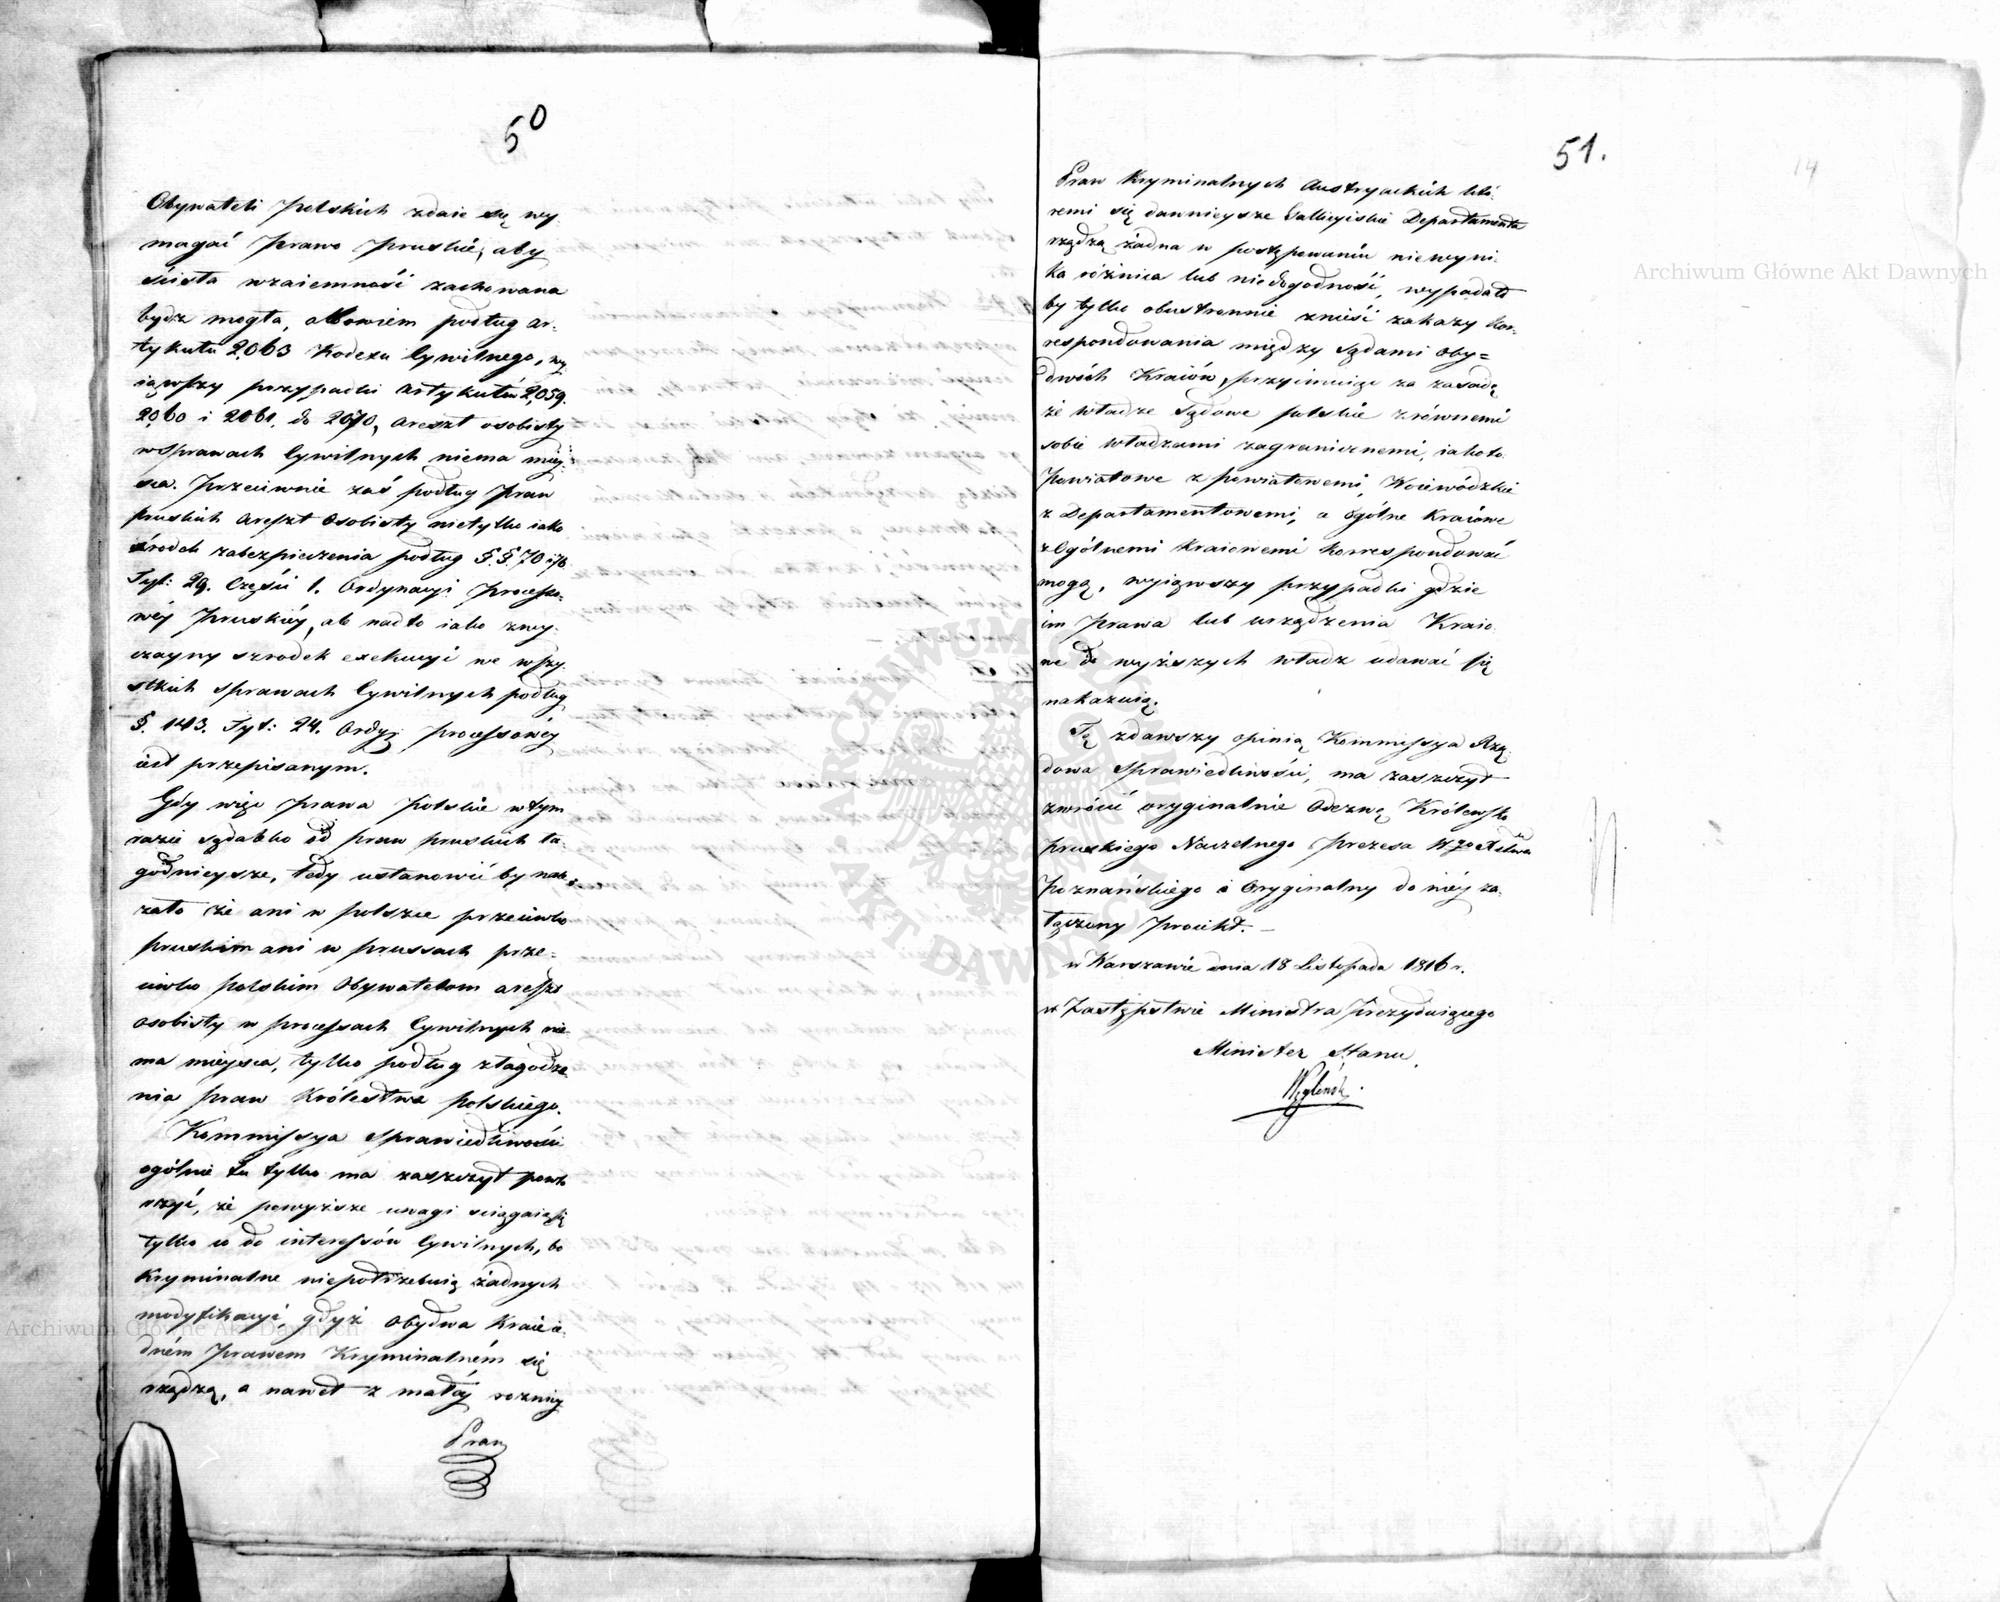 50
Obywateli Polskich zdaie się wy-
magać prawo pruskie, aby
ścisła wzaiemność zachowana
bydź mogła, albowiem podług ar-
tykułu 2063 Kodexu Cywilnego, wy-
iąwszy przypadki Artykułów 2059.
2060 i 2061. do 2070, areszt osobisty
w sprawach Cywilnych niema miey-
sca. Przeciwnie zaś podług praw
pruskich areszt osobisty nietylko iako
środek zabezpieczenia podług §.§. 70 i 76
Tyt: 29. Części 1. Ordynacyi Processo-
wéy Pruskiéy, ale nadto iako zwy-
czayny szrodek exekucyi we wszy-
stkich sprawach Cywilnych podług
§. 143. Tyt: 24. Ordyi processowéy
iest przepisanym.
Gdy więc prawa polskie w tym
razie są daleko od praw pruskich ła-
godnieysze, tedy ustanowić by nale-
żało że ani w polszcze przeciwko
pruskim ani w prussach prze-
ciwko polskim Obywatelom areszt
osobisty w processach Cywilnych nie-
ma mieysca, tylko podług złagodze-
nia praw Królestwa polskiego.
Kommissya Sprawiedliwości
ogólnie tu tylko ma zaszczyt powtó-
rzyć, że powyższe uwagi ściągaią się
tylko co do interessów Cywilnych, bo
Kryminalne niepotrzebuią żadnych
modyfikacyi, gdyż obydwa Kraie ie-
dném prawem Kryminalném się
rządzą, a nawet z małéy roznicy
Praw
51.
14
Praw Kryminalnych Austryackich któ-
remi się dawnieysze Gallicyiskie Departamenta
rządzą żadna w postępowaniu niewyni-
ka różnica lub niedogodność, wypadało
by tylko obustronnie znieść zakazy Kor-
respondowania między Sądami oby=
dwóch Kraiów, przyimuiąc za zasadę
że władze Sądowe polskie z równemi
sobie władzami zagranicznemi, iako to
Powiatowe z powiatowemi, Woiewódzkie
z Departamentowemi, a ogólne Kraiowe
z Ogólnemi Kraiowemi korrespondować
mogą, wyiąwszy przypadki gdzie
im prawa lub urządzenia Kraio-
we do wyższych władz udawać się
nakazuią.
Tę zdawszy opinią Kommissya Rzą-
dowa Sprawiedliwości, ma zaszczyt
zwrócić oryginalnie Odezwę Królewsko
pruskiego Naczelnego Prezesa
Poznańskiego i Oryginalny do niéy za-
łączony Proiekt.
w Warszawie dnia 18 Listopada 1816 r.
w Zastępstwie Ministra Prezyduiącego
Minister Stanu
Węgleński
Archiwum Główne Akt Dawnych
Archiwum Główne Akt Dawnych
ARCHIWUM GŁÓWNE AKT DAWNYCH